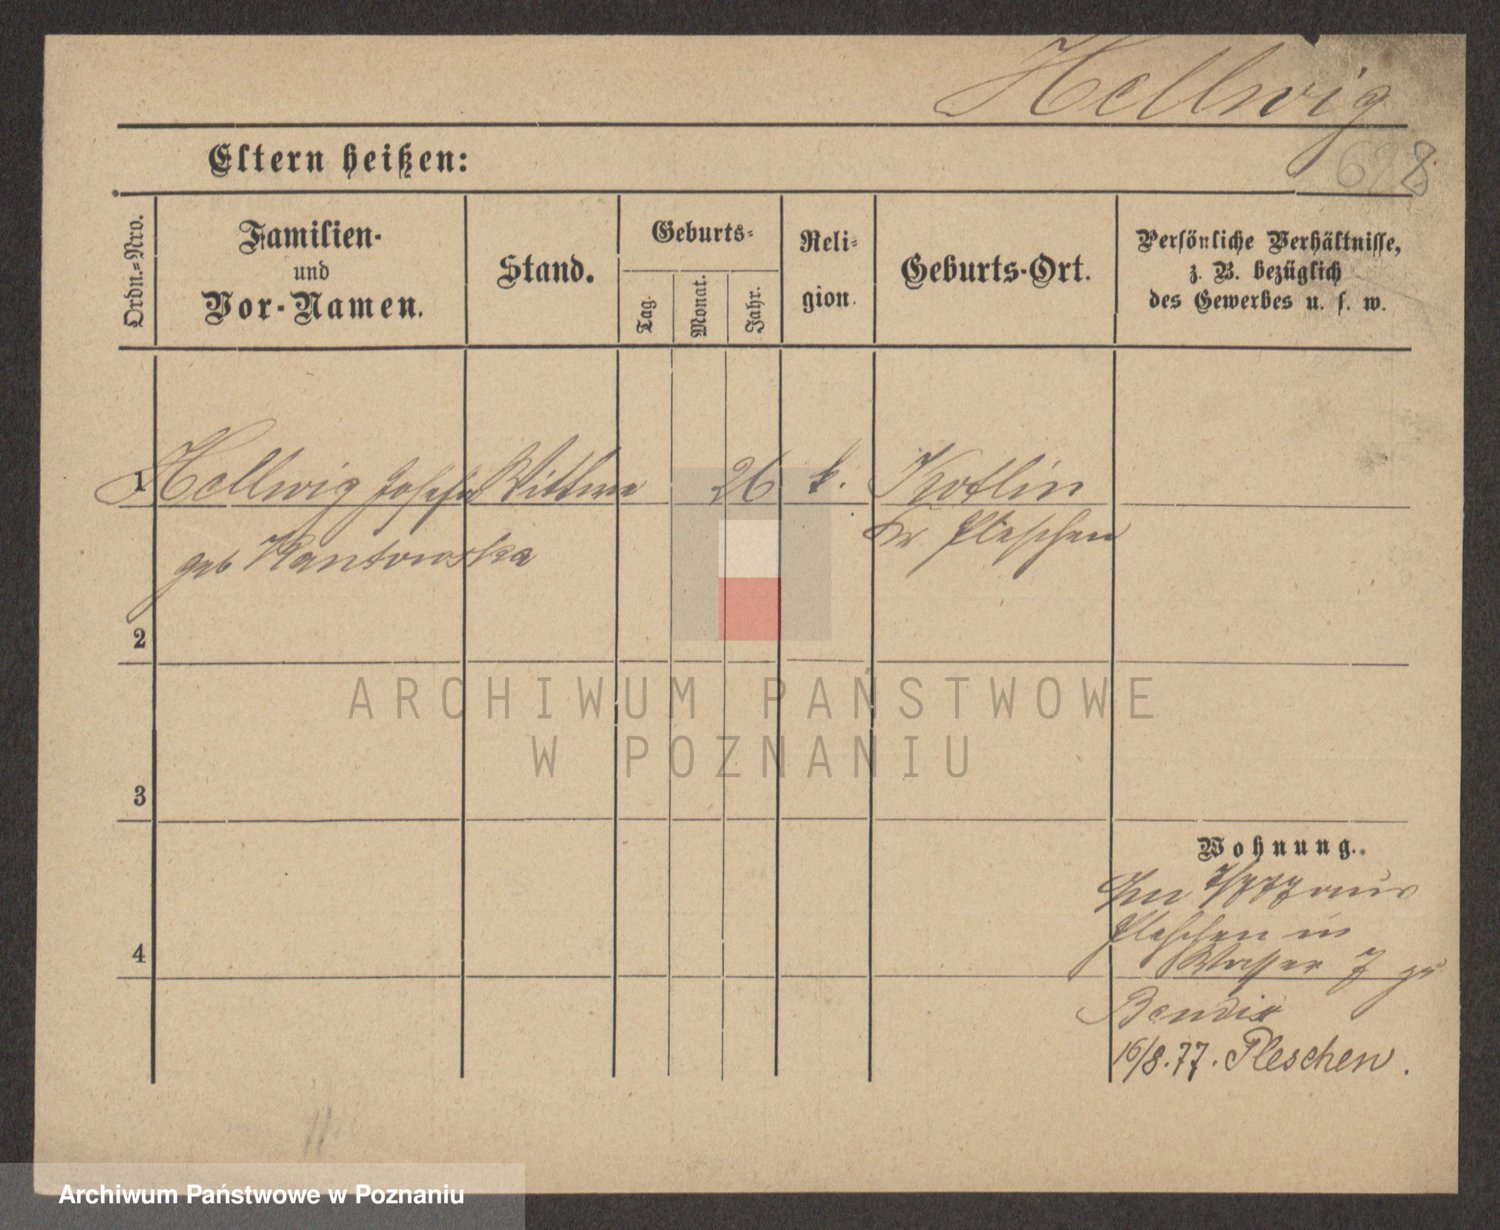 Hellwig
628
Eltern heißen:
Ordn.-Nro.
Familien-
und
Vor-Namen.
Stand.
Geburts-
Tag.
Monat.
Jahr.
Reli-
gion.
Geburts-Ort.
Persönliche Verhältnisse,
z. B. bezüglich
des Gewerbes u. s. w.
1 Hellwig Josepha Wittwe 26 k. Kotlin
geb Kantowska Kr Pleschen
2
ARCHIWUM PAŃSTWOWE
W POZNANIU
3
Wohnung.
77 aus
Pleschen in
4 Wasser 7
Bendix
16/8.77. Pleschen.
Archiwum Państwowe w Poznaniu